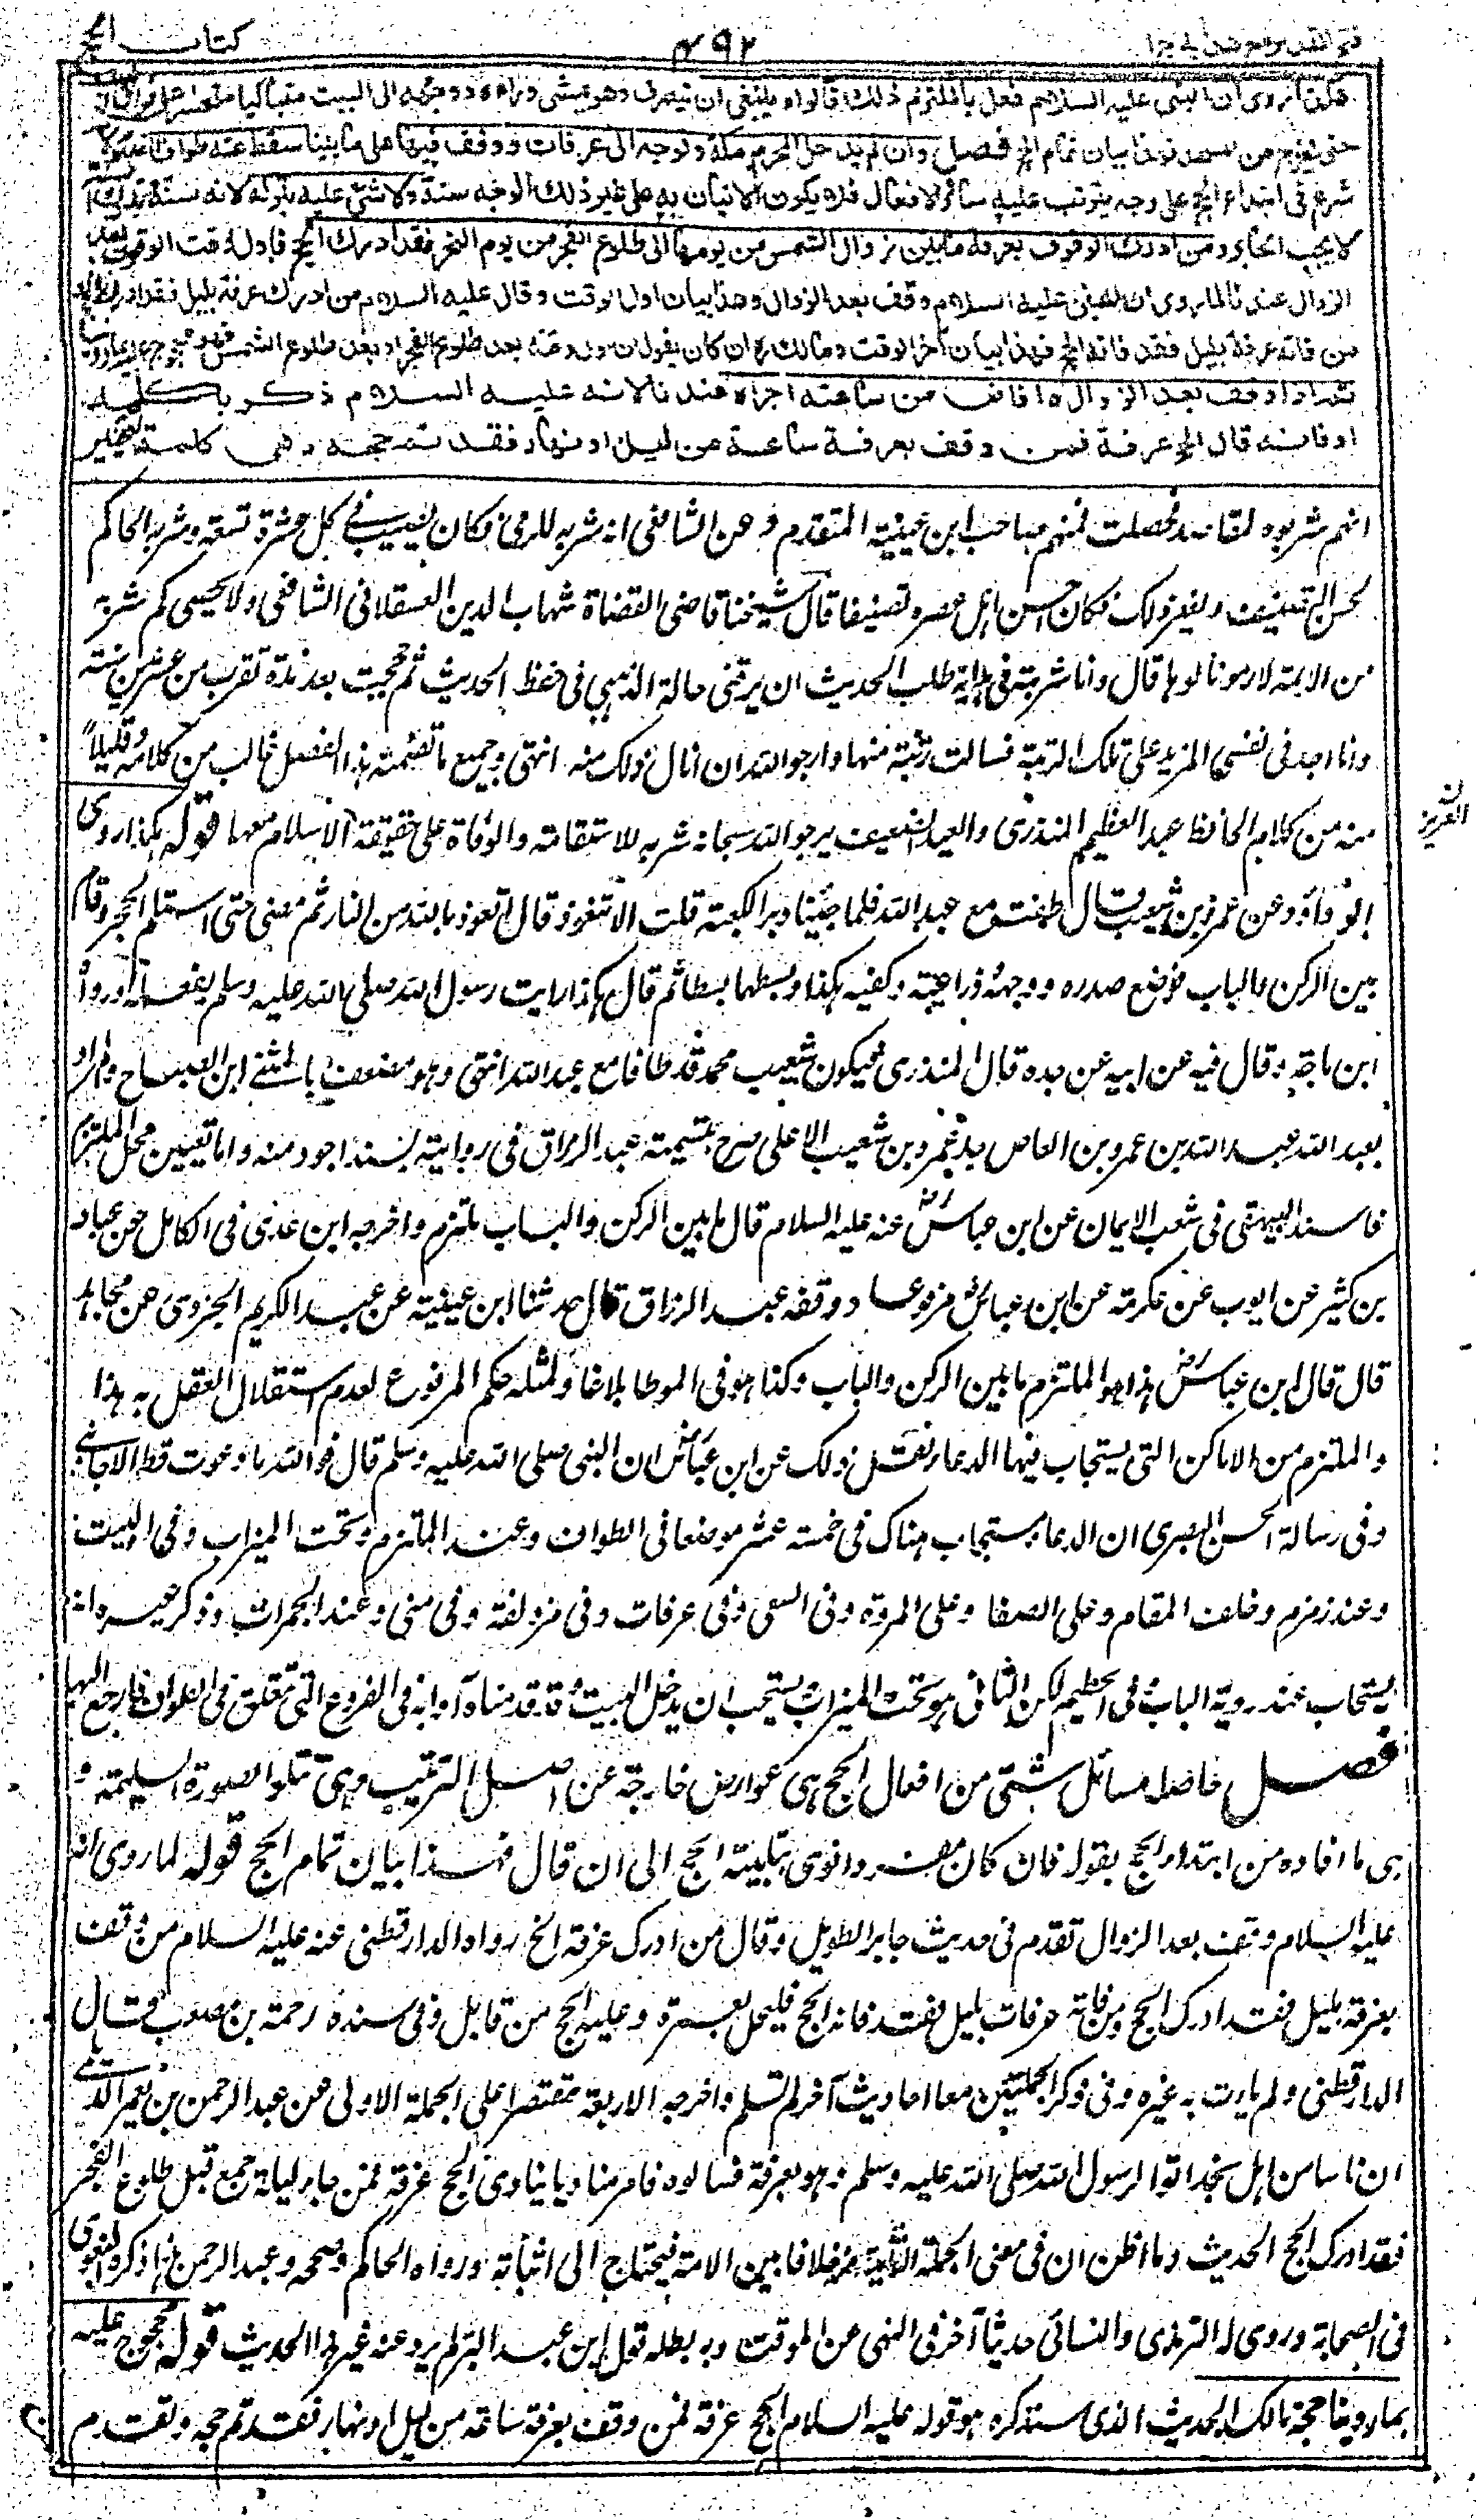 فتح القدير مع هدايه ج ١
٤٩٢
كتاب الحج
هكذا روى ان النبى عليه السلام فعل بالملتزم ذلك قالوا ينبغى ان ينصرف وهو يمشى وراءه ووجهه الى البيت متباكيا متحسرا على فراق البيت
حتى يخرج من المسجد فهذا بيان تمام الحج فصل وان لم يدخل المحرم مكة وتوجه الى عرفات ووقف فيها على ما بينا سقط عنه طواف القدوم لانه
شرع فى ابتداء الحج على وجه يترتب عليه سائر الافعال فلا يكون الاتيان به على غير ذلك الوجه سنة ولا شئ عليه بتركه لانه سنة وبترك السنة
لا يجب الجابر ومن ادرك الوقوف بعرفة ما بين زوال الشمس من يومها الى طلوع الفجر من يوم النحر فقد ادرك الحج فاول وقت الوقوف بعد
الزوال عندنا لما روى ان النبى عليه السلام وقف بعد الزوال وهذا بيان اول الوقت وقال عليه السلام من ادرك عرفة بليل فقد ادرك الحج و
من فاته عرفة بليل فقد فاته الحج فهذا بيان آخر الوقت ومالك ره ان كان يقول ان اول وقته بعد طلوع الفجر او بعد طلوع الشمس فهو محجوج عليه بما روينا
ثم اذا وقف بعد الزوال وافاض من ساعته اجزاه عندنا لانه عليه السلام ذكر بكلمة
او فانه قال الحج عرفة فمن وقف بعرفة ساعة من ليل او نهار فقد تم حجه وهى كلمة التخيير
انهم شربوه لمقاصد فحصلت فمنهم صاحب ابن عيينة المتقدم وعن الشافعى انه شربه للرمى فكان يصيب فى كل عشرة تسعة وشربه الحاكم
لحسن التصنيف ولغير ذلك فكان احسن اهل عصره تصنيفا قال شيخنا قاضى القضاة شهاب الدين العسقلانى الشافعى ولا يحصى كم شربه
من الائمة لامور نالوها قال وانا شربته فى بداية طلب الحديث ان يرزقنى حالة الذهبى فى حفظ الحديث ثم حججت بعد مدة تقرب من عشرين سنة
وانا اجد فى نفسى المزيد على تلك الرتبة فسألت رتبة منها وارجو الله ان انال ذلك منه انتهى وجميع ما تضمنه هذا الفصل غالب من كلامه وقليلا
منه من كلام الحافظ عبد العظيم المنذرى والعبد الضعيف يرجو الله سبحانه شربه للاستقامة والوفاة على حقيقة الاسلام معها قوله هكذا روى
ابو داؤد عن عمرو بن شعيب قال طفت مع عبد الله فلما جئنا دبر الكعبة قلت الا تتعوذ قال اتعوذ بالله من النار ثم مضى حتى استلم الحجر وقام
بين الركن والباب فوضع صدره ووجهه وذراعيه وكفيه هكذا وبسطهما بسطا ثم قال هكذا رايت رسول الله صلى الله عليه وسلم يفعله ورواه
ابن ماجه وقال فيه عن ابيه عن جده قال المنذرى فيكون شعيب ومحمد قد طافا مع عبد الله انتهى وهو مضعف بالمثنى ابن الصباح والمراد
بعبد الله عبد الله بن عمرو بن العاص جد عمرو بن شعيب الاعلى صرح بتسميته عبد الرزاق فى روايته بسند اجود منه واما تعيين محل الملتزم
فاسند البيهقى فى شعب الايمان عن ابن عباس عنه عليه السلام قال ما بين الركن والباب ملتزم واخرجه ابن عدى فى الكامل عن عباد
بن كثير عن ايوب عن عكرمة عن ابن عباس مرفوعا ووقفه عبد الرزاق قال حدثنا ابن عيينة عن عبد الكريم الجزرى عن مجاهد
قال قال ابن عباس هذا هو الملتزم ما بين الركن والباب وكذا هو فى الموطا بلاغا ولمثله حكم المرفوع لعدم استقلال العقل به هذا
والملتزم من الاماكن التى يستجاب فيها الدعاء نقل ذلك عن ابن عباس ان النبى صلى الله عليه وسلم قال فوالله ما دعوت قط الا اجابنى
وفى رسالة الحسن البصرى ان الدعاء مستجاب هناك فى خمسة عشر موضعا فى الطواف وعند الملتزم وتحت الميزاب وفى البيت
وعند زمزم وخلف المقام وعلى الصفا وعلى المروة وفى السعى وفى عرفات وفى مزدلفة وفى منى وعند الجمرات وذكر غيره انه
يستجاب عند روية الباب وفى الحطيم لكن الثانى هو تحت الميزاب يستحب ان يدخل البيت وقد قدمناه آدابه فى الفروع التى تتعلق فى الطواف فارجع اليها
فصل حاصله مسائل شتى من افعال الحج هى عوارض خارجة عن اصل الترتيب وهى تتلو الصورة السليمة و
هى ما افاده من ابتداء الحج بقوله فان كان مفردا نوى بتلبية الحج الى ان قال فهذا بيان تمام الحج قوله لما روى انه
عليه السلام وقف بعد الزوال تقدم فى حديث جابر الطويل وقال من ادرك عرفة الخ رواه الدارقطنى عنه عليه السلام من وقف
بعرفة بليل فقد ادرك الحج ومن فاته عرفات بليل فقد فاته الحج فليحل بعمرة وعليه الحج من قابل وفى سنده رحمة بن مصعب قال
الدارقطنى ولم يات به غيره وفى ذكر الجملتين معا احاديث آخر لم تسلم واخرجه الاربعة مقتصرا على الجملة الاولى عن عبد الرحمن بن يعمر الديلى
ان ناسا من اهل نجد اتوا رسول الله صلى الله عليه وسلم وهو بعرفة فسالوه فامر مناديا ينادى الحج عرفة فمن جاء ليلة جمع قبل طلوع الفجر
فقد ادرك الحج الحديث وما اظن ان فى معنى الجملة الثانية خلافا بين الامة فيحتاج الى اثباته ورواه الحاكم وصححه وعبد الرحمن هذا ذكره البغوى
فى الصحابة وروى له الترمذى والنسائى حديثا آخر فى النهى عن المزفت وبه بطل قول ابن عبد البر لم يرو عنه غير هذا الحديث قوله محجوج عليه
بما روينا حجة مالك الحديث الذى سنذكره هو قوله عليه السلام الحج عرفة فمن وقف بعرفة ساعة من ليل او نهار فقد تم حجه وتقدم